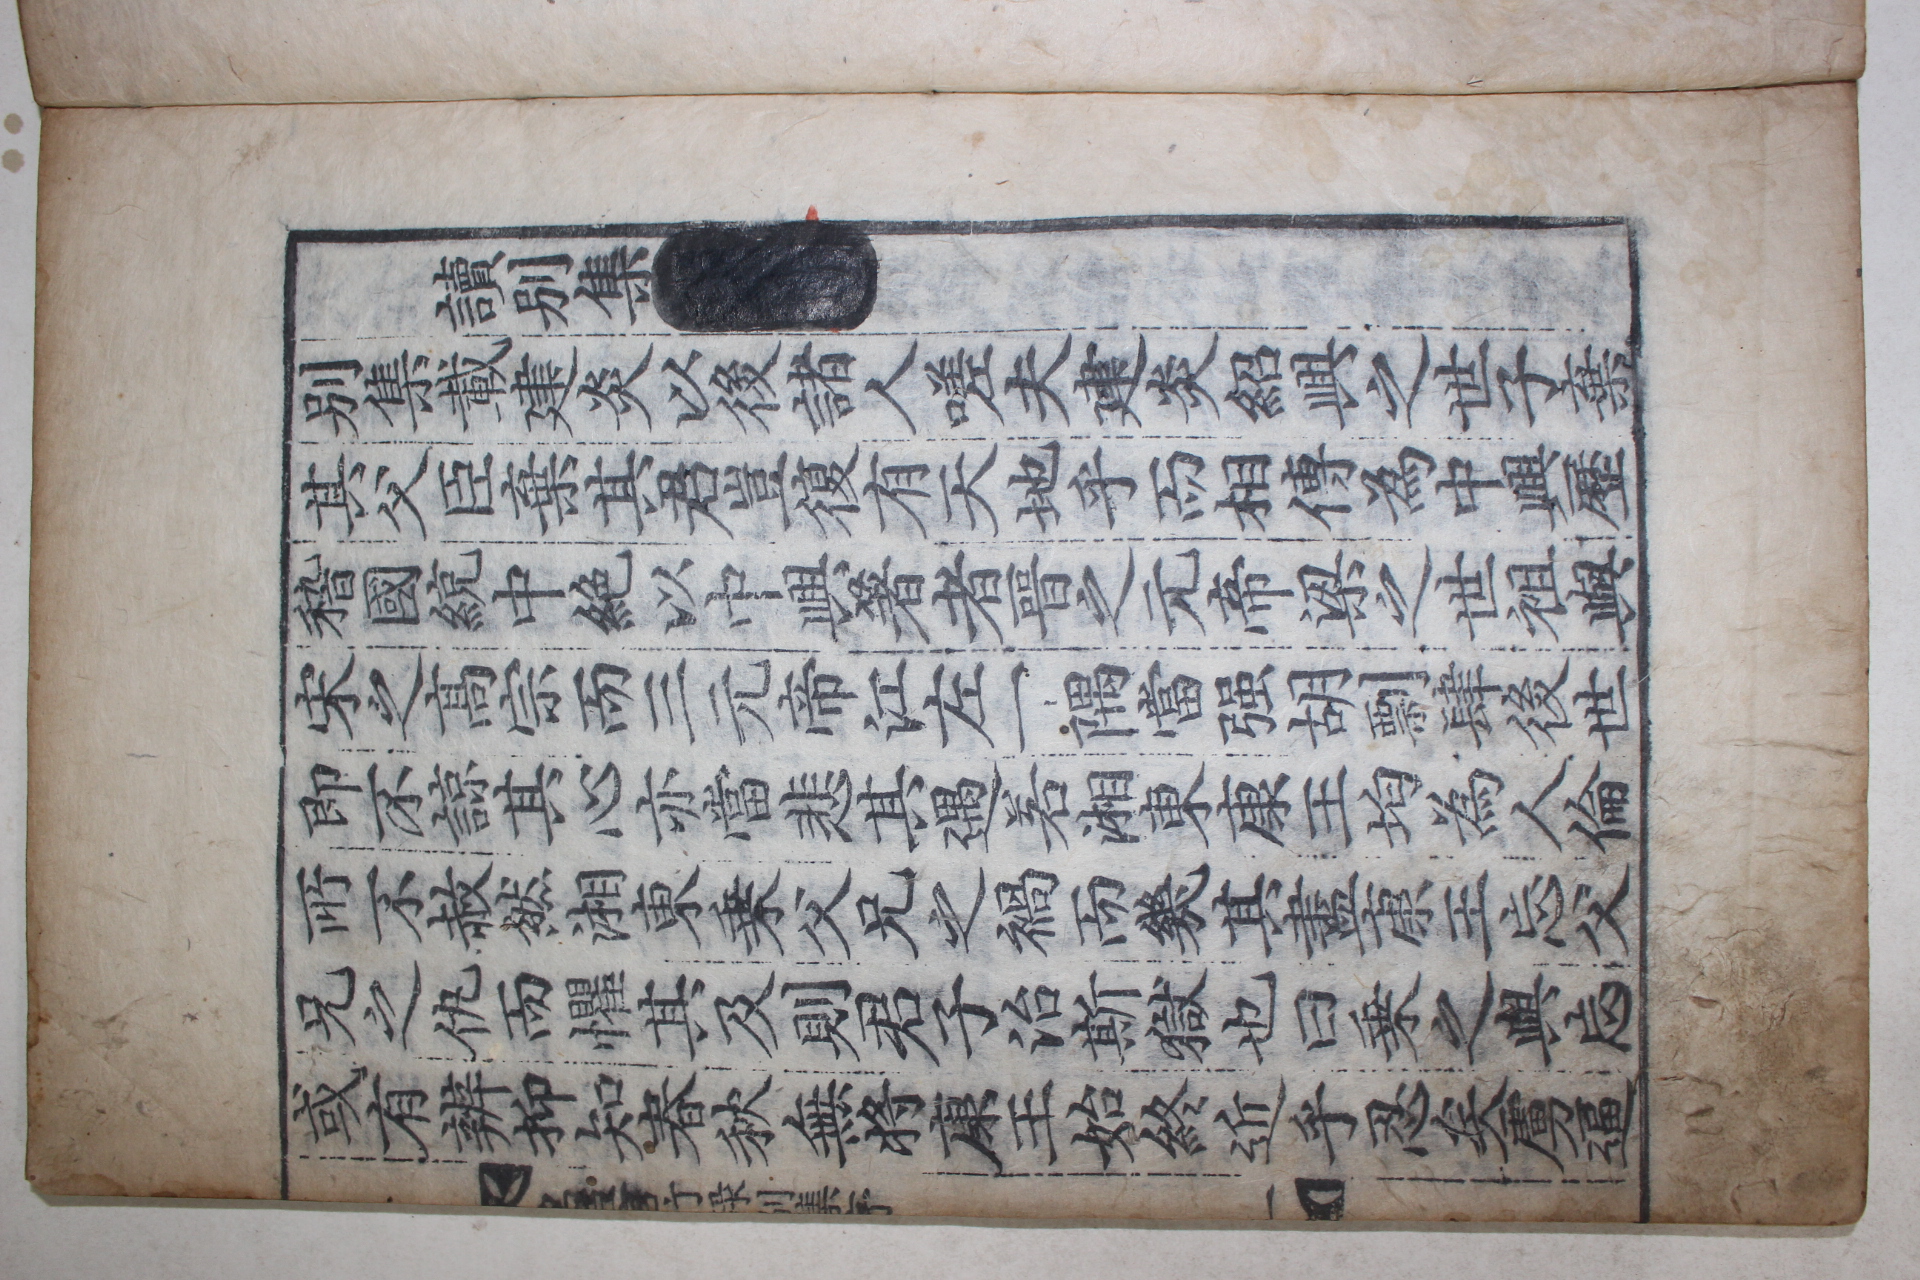 讀别集
别集載建炎以後諸人嗟夫建炎紹興之世子棄
其父臣棄其君豈復有天地乎而相傳為中興歷
稽國統中絶以中興著者晉之元帝梁之世祖與
宋之高宗而三元帝江左一隅當强胡剽肆後世
即不諒其心亦當悲其遇若湘東康王均為人倫
所不赦然湘東乗父兄之禍而幾其盡康王忘父
兄之仇而懼其及則君子治斯獄也曰乗之與忘
或有辨抑知春秋無將康王始終近乎忍矣虜逼
行録别集序
一